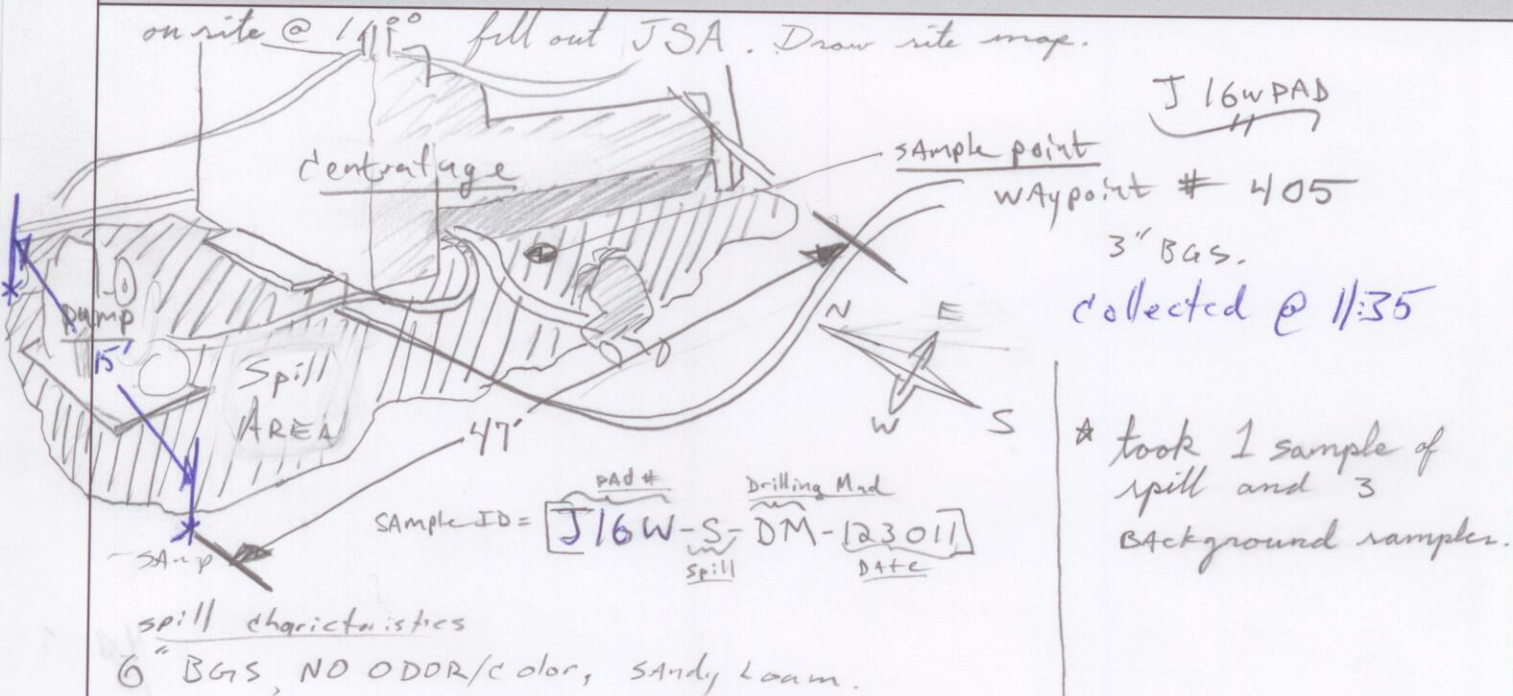 on site @ 11°° fill out JSA. Draw site map.
J16W PAD
Centrafuge
sample point
WAypoint # 405
3" BGS.
Collected @ 11:35
N
E
W
S
pump
15'
Spill
AREA
47'
* took 1 sample of
spill and 3
BAckground samples.
PAd #
Drilling Mud
SAmple ID = [J16W-S-DM-123011]
Spill
DAte
SAmp
spill charictoristics
6" BGS, NO ODOR/Color, SAndy Loam.